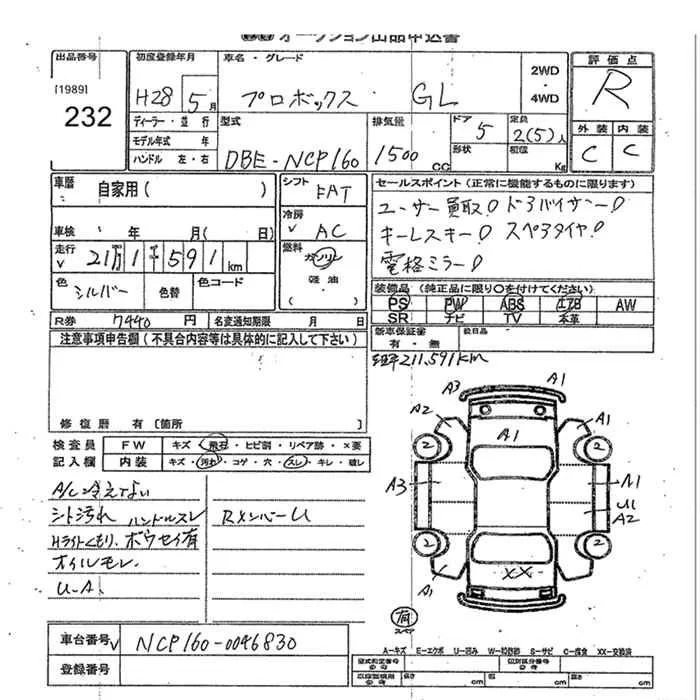 オークション出品申込書
出品番号 初度登録年月 車名・グレード 2WD 評価点
[1989] H28 5月 プロボックス GL ・4WD R
232 ディーラー・並行 型式 排気量 ドア 定員
モデル年式 年 DBE-NCP160 1500 CC 5 2(5)人 外装 内装
ハンドル 左・右 形状 積載 Kg C C
車歴 自家用( ) シフト FAT セールスポイント(正常に機能するものに限ります)
冷房 AC ユーザー買取! ドアバイザー!
車検 年 月( 日) キーレスキー! スペアタイヤ!
走行 211591km 燃料 ガソリン 電格ミラー!
軽油
色 シルバー 色替 色コード 装備品(純正品に限り○を付けてください)
PS PW ABS エアB AW
R券 7440円 名変通知期限 月 日 SR ナビ TV 本革
注意事項申告欄(不具合内容等は具体的に記入して下さい) 新車保証書 有・無 後日品
211,591km
修復歴 有〔箇所 〕
検査員 FW キズ・飛石・ヒビ割・リペア跡・×要
記入欄 内装 キズ・汚れ・コゲ・穴・スレ・キレ・破レ
A/C冷えてない
シート汚れ ハンドルスレ RメンバーU
Hライトくもり、ボウセイ有
オイルモレ
U-A
A3 A1
A2 A1 A1
2 2
A3 A1
U1
A2
2 2
A1 XX
有
スペア
車台番号 NCP160-0046830
登録番号
A-キズ E-エクボ U-凹み W-補修跡 S-サビ C-腐食 XX-交換済
型式指定番号 類別区分番号
長さ cm 幅 cm 高さ cm